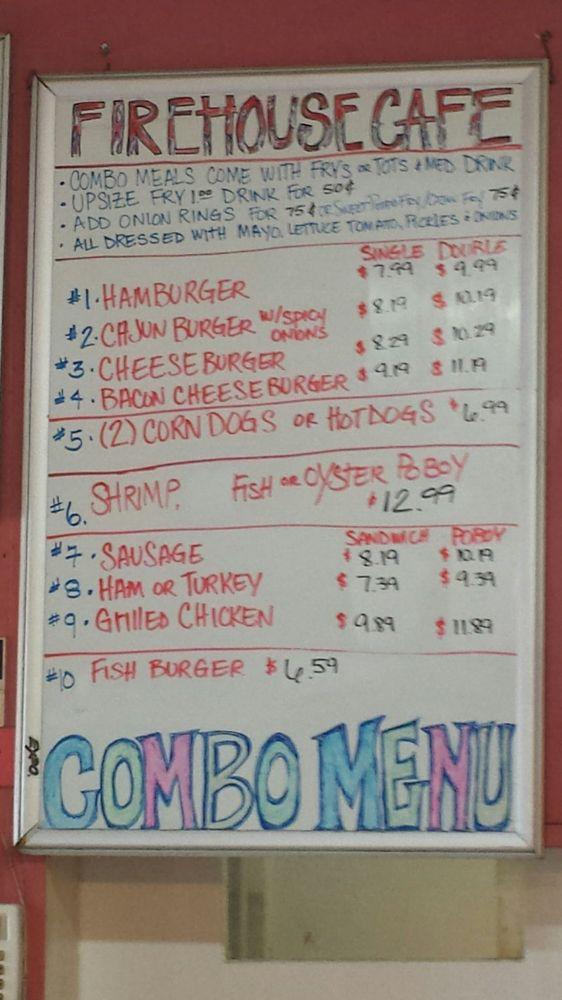 FIREHOUSE CAFE
• COMBO MEALS COME WITH FRYS OR TOTS & MED DRINK
• UPSIZE FRY 1.00 DRINK FOR 50¢
• ADD ONION RINGS FOR 75¢ OR SWEET POTATO FRY / 75¢
• ALL DRESSED WITH MAYO, LETTUCE TOMATO, PICKLES & ONIONS
SINGLE DOUBLE
#1. HAMBURGER $7.99 $9.99
#2. CAJUN BURGER W/SPICY ONIONS $8.19 $10.19
#3. CHEESEBURGER $8.29 $10.29
#4. BACON CHEESEBURGER $9.19 $11.19
#5. (2) CORNDOGS OR HOTDOGS $6.99
#6. SHRIMP, FISH OR OYSTER POBOY
$12.99
SANDWICH POBOY
#7. SAUSAGE $8.19 $10.19
#8. HAM OR TURKEY $7.39 $9.39
#9. GRILLED CHICKEN $9.89 $11.89
#10 FISH BURGER $6.59
COMBO MENU